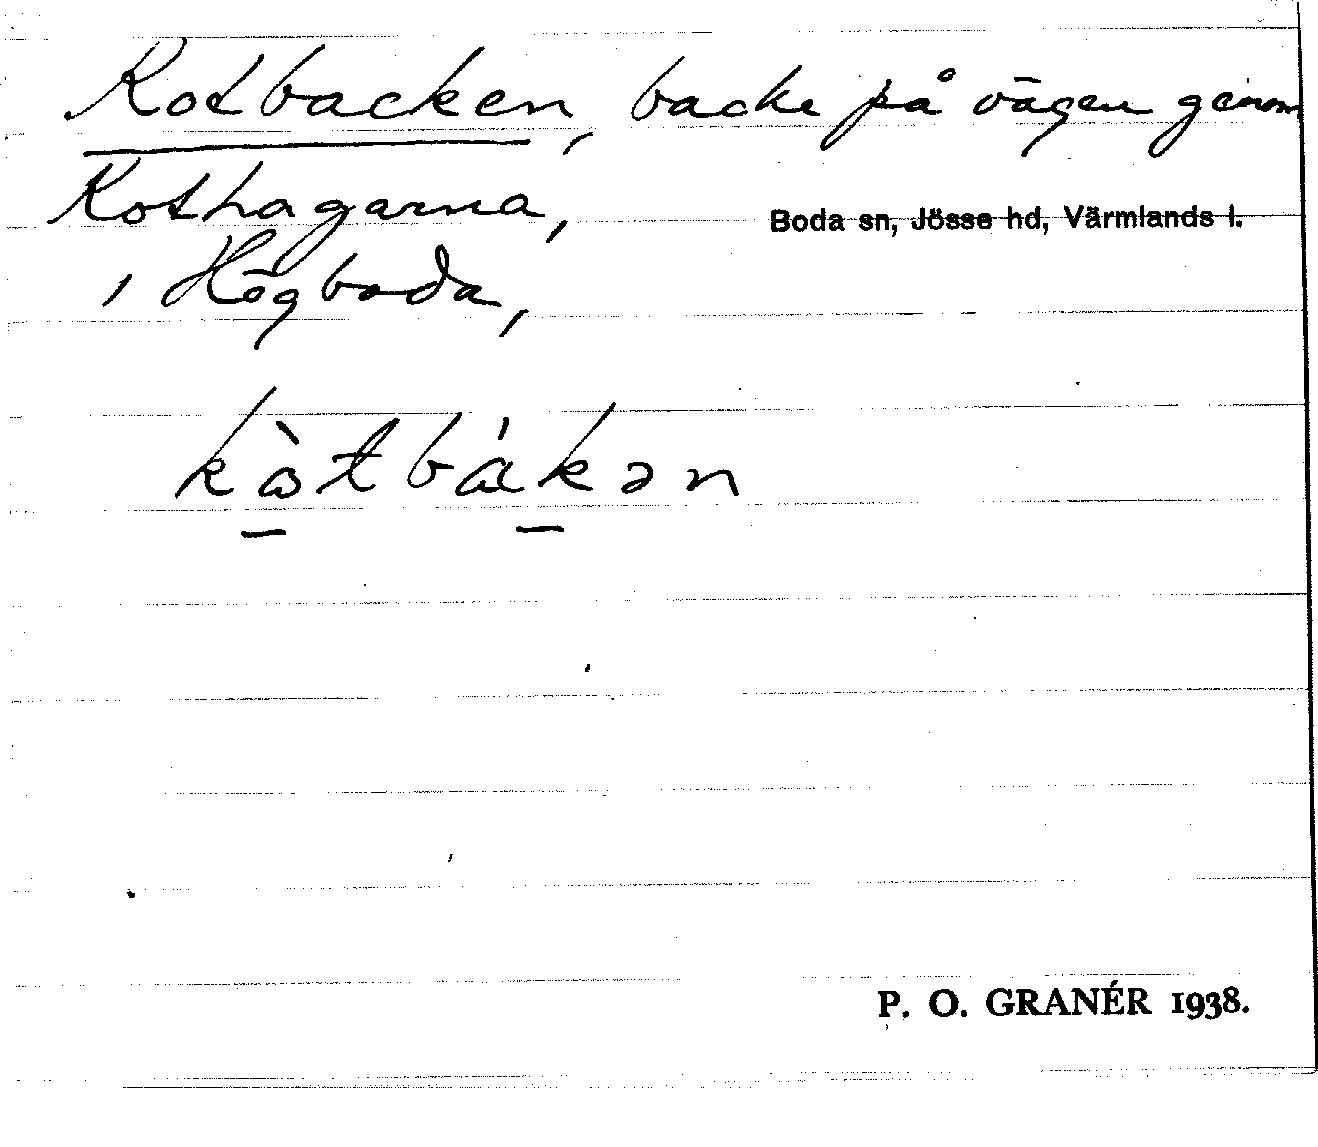 Kotbacken, backe på vägen genom
Kothagarna,
Boda sn, Jösse hd, Värmlands l.
i Högboda,
kòtbákən
P. O. GRANÉR 1938.